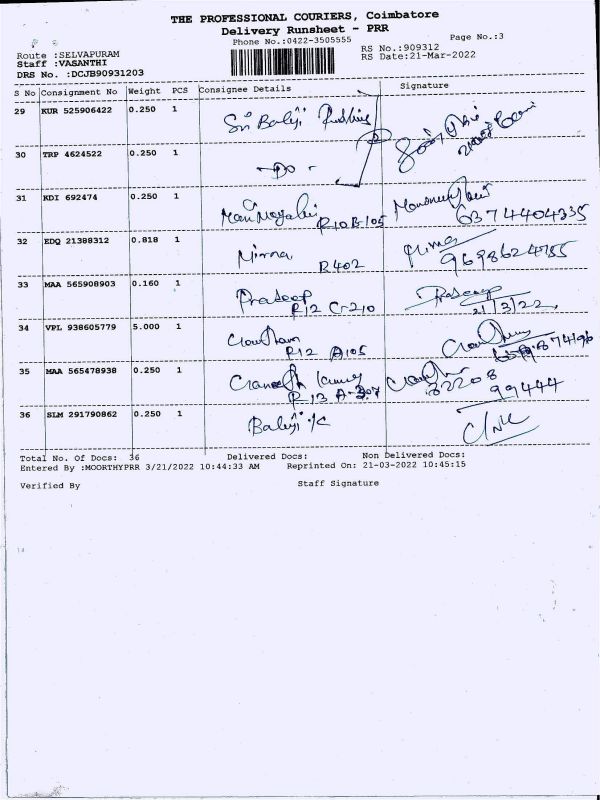 THE PROFESSIONAL COURIERS, Coimbatore
Delivery Runsheet - PRR
Phone No.:0422-3505555
Page No.:3
Route :SELVAPURAM
RS No.:909312
Staff :VASANTHI
RS Date:21-Mar-2022
DRS No. :DCJB90931203
S No Consignment No Weight PCS Consignee Details Signature
29 KUR 525906422 0.250 1 Sri Balaji
30 TRP 4624522 0.250 1 -Do-
31 KDI 692474 0.250 1 R10B-105 6374404335
32 EDQ 21388312 0.818 1 Mirna B402 Mirna 9698624755
33 MAA 565908903 0.160 1 Pradeep R12 G-210 Pradeep 21/3/22
34 VPL 938605779 5.000 1 Gowtham R12 A105
35 MAA 565478938 0.250 1 R13 A-307 82208 99444
36 SLM 291790862 0.250 1 Balaji
Total No. Of Docs: 36 Delivered Docs: Non Delivered Docs:
Entered By :MOORTHYPRR 3/21/2022 10:44:33 AM Reprinted On: 21-03-2022 10:45:15
Verified By Staff Signature